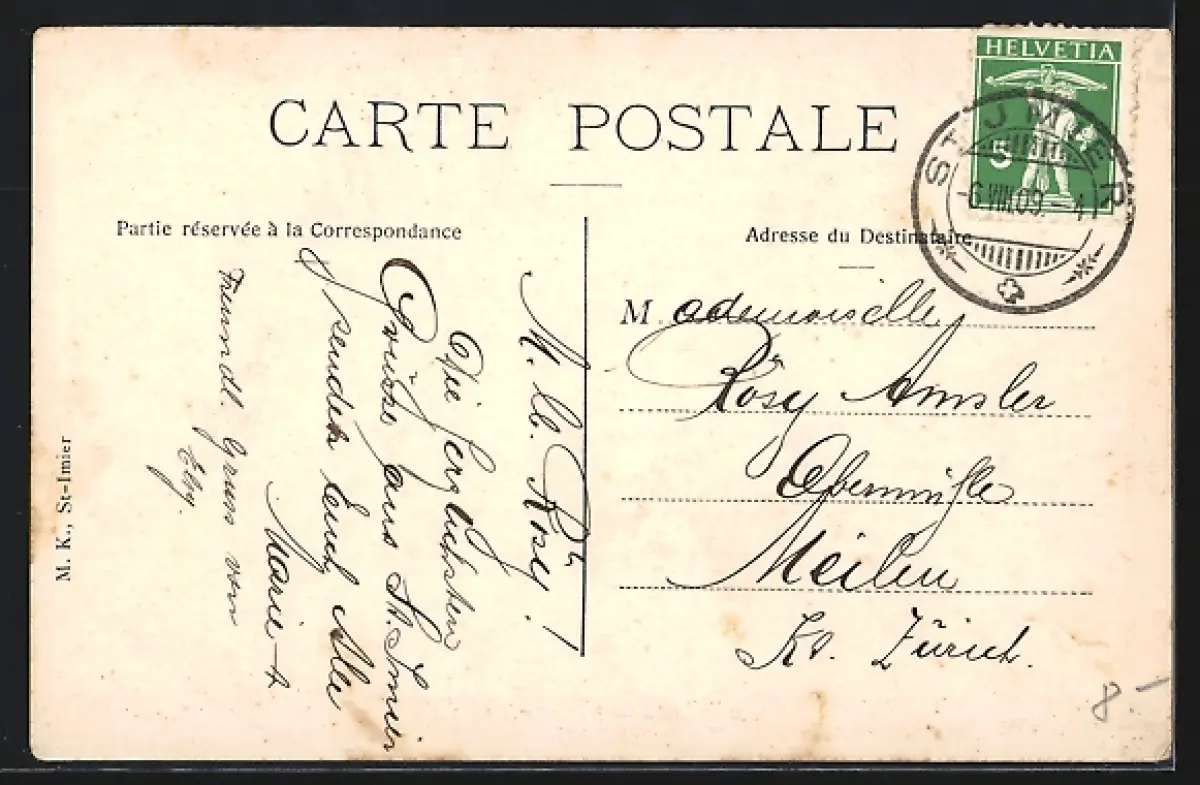 HELVETIA
5
ST. JMIER
-6.VIII.09.-4
CARTE POSTALE
Partie réservée à la Correspondance
Adresse du Destinataire
Mademoiselle
Rösy Amsler
Obermühle
Meilen
Kt. Zürich.
M. lb. Rösy!
Die herzlichsten
Grüsse aus St. Imier
senden Euch Alle
Marie
Freundl. Gruss von
M. K., St-Imier
8-